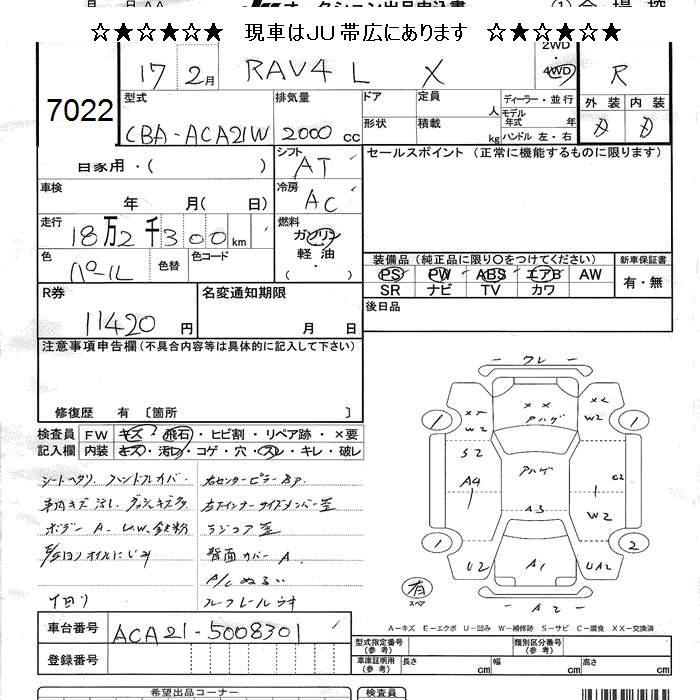 ☆★☆★☆★ 現車はJU帯広にあります ☆★☆★☆★
17 2月 RAV4 L X
2WD ・ 4WD R
7022
型式 CBA-ACA21W
排気量 2000 cc
ドア 定員 人
形状 積載 kg
ディーラー・並行
モデル年式 年
ハンドル 左・右
外装 内装
D D
自家用・( )
シフト AT
セールスポイント (正常に機能するものに限ります)
車検 年 月( 日)
冷房 AC
走行 18万2千300km
燃料 ガソリン
軽油
( ・ )
色 パール 色替 色コード
装備品(純正品に限り○をつけてください)
PS PW ABS エアB AW
SR ナビ TV カワ
新車保証書
有・無
R券 11420 円
名変通知期限 月 日
後日品
注意事項申告欄(不具合内容等は具体的に記入して下さい)
修復歴 有 〔箇所 〕
検査員記入欄
FW キズ・飛石・ヒビ割・リペア跡・×要
内装 キズ・汚レ・コゲ・穴・スレ・キレ・破レ
シートヘタリ、ハンドルカバー
ボデー A、U、W、鉄粉
オイルにじみ
右センターピラー
右インナーサイズメンバー歪
ラジコア歪
背面カバー A
A/Cぬるい
ルーフレールウキ
ワレ
×× アハゲ
W2 W2
1 1
S2 アハゲ C2
A4 A3 W2
1 2
U2 A1 UA2
A2
有
スペア
A－キズ E－エクボ U－凹み W－補修跡 S－サビ C－腐食 XX－交換済
車台番号 ACA21-5008301
登録番号
型式指定番号(参考) 類別区分番号(参考)
車庫証明用(参考) 長さ cm 幅 cm 高さ cm
希望出品コーナー 検査員